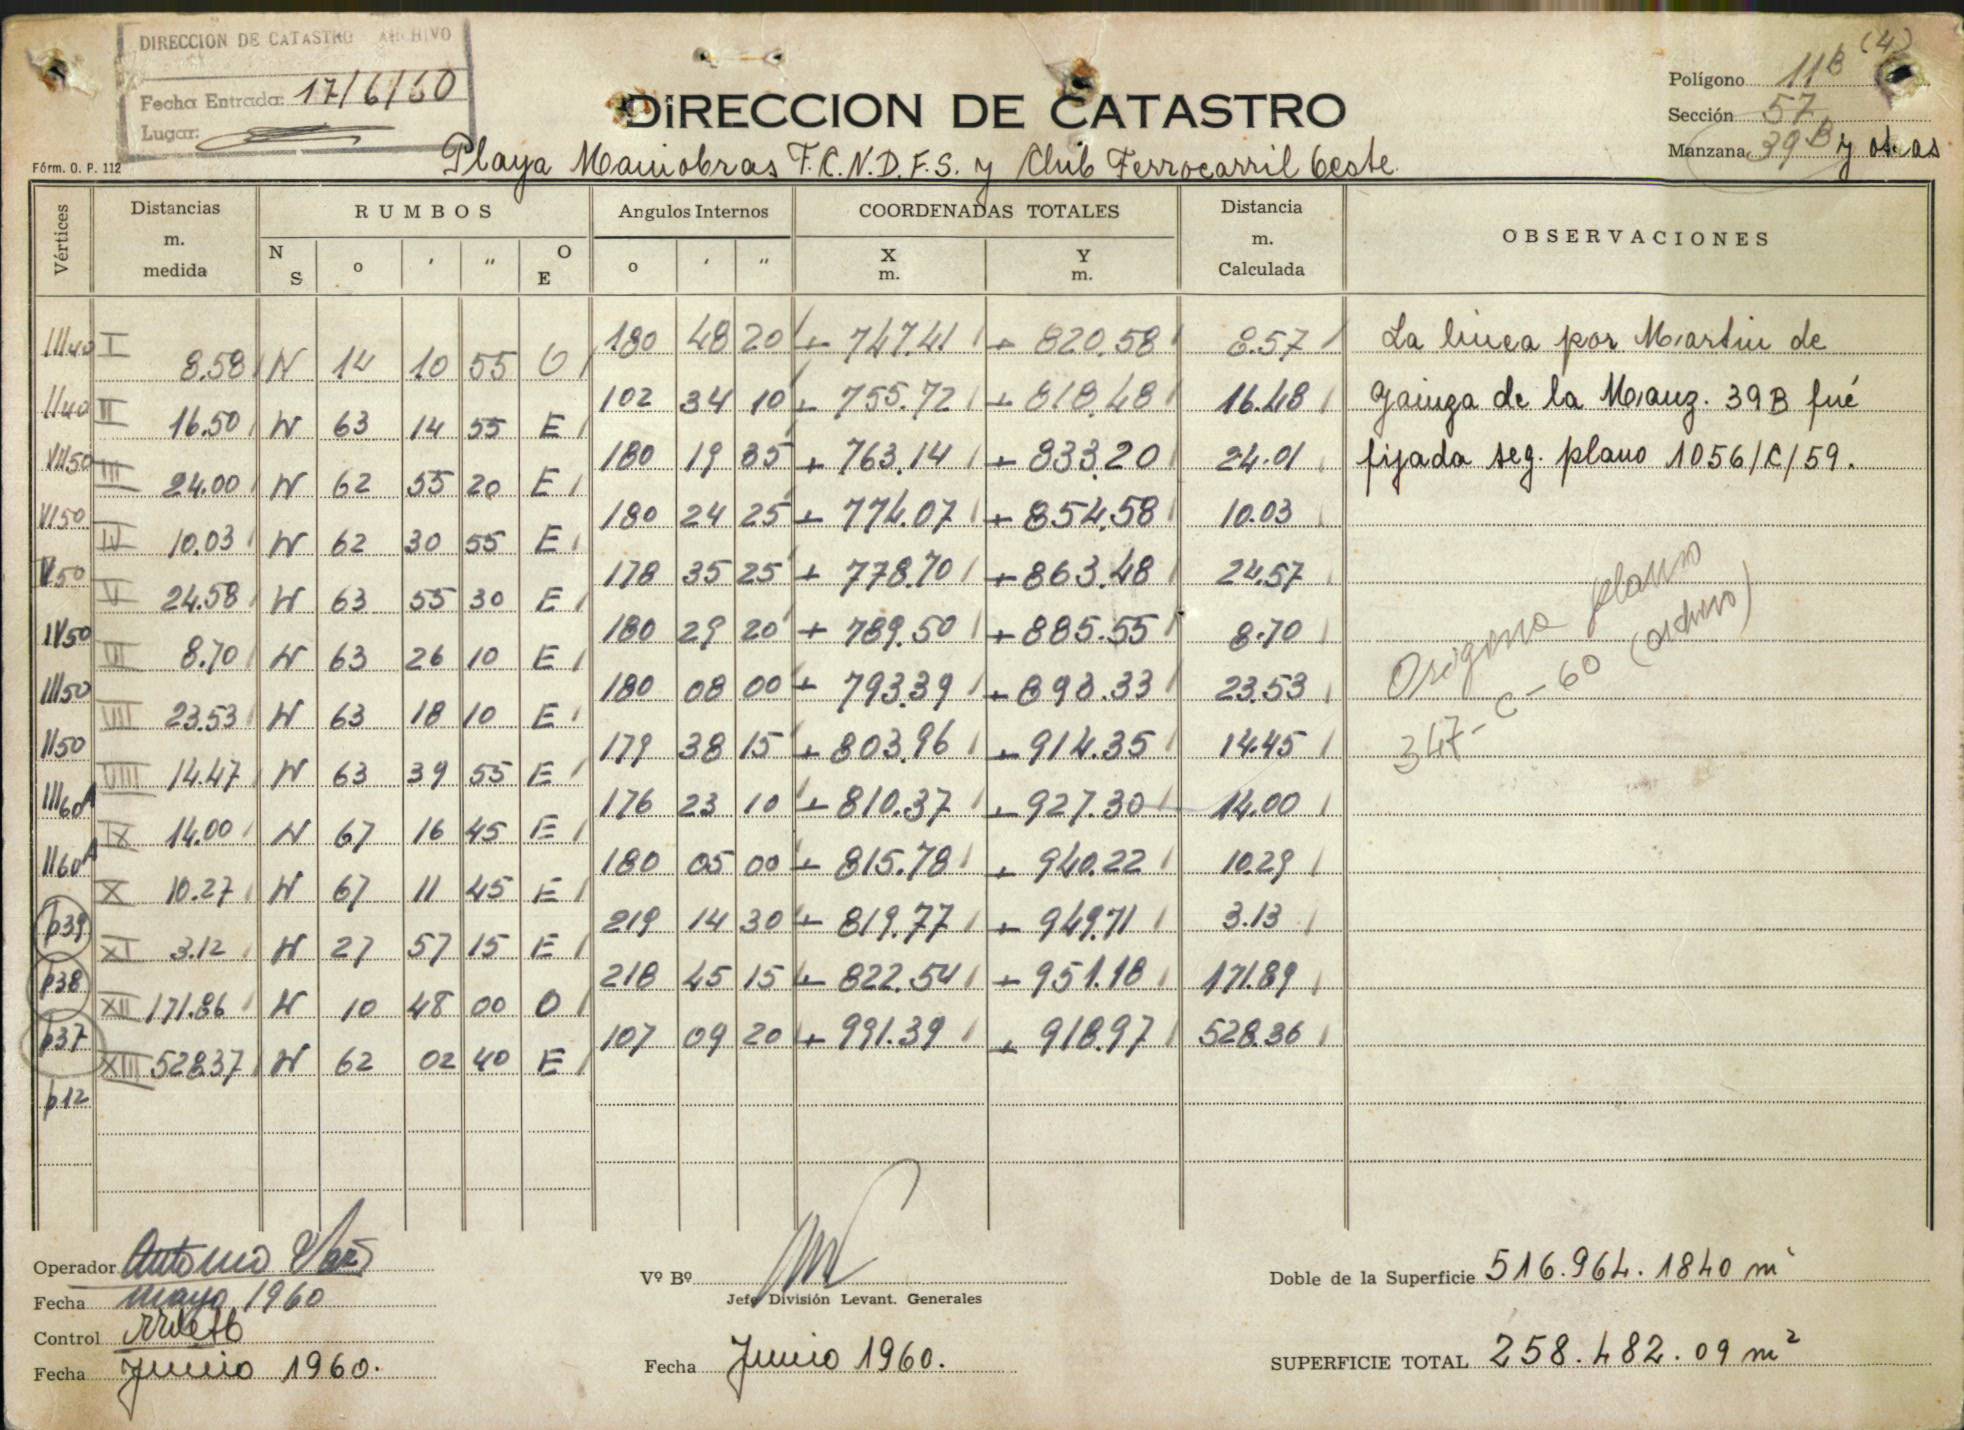 DIRECCION DE CATASTRO ARCHIVO
Fecha Entrada: 17/6/60
Lugar:
DiRECCION DE CATASTRO
(4)
Polígono 11B
Sección 57
Manzana 39B y otras
Fórm. O. P. 112
Playa Maniobras F.C.N.D.F.S. y Club Ferrocarril Oeste
Vértices Distancias m. medida RUMBOS N S o ' " O E Angulos Internos o ' " COORDENADAS TOTALES X m. Y m. Distancia m. Calculada OBSERVACIONES
III40 I 180 48 20 + 747.41 + 820.58 8.57 La linea por Martin de
8.58 N 14 10 55 O
II40 II 102 34 10 + 755.72 + 818.48 16.48 Gainza de la Manz. 39B fué
16.50 N 63 14 55 E
VII50 III 180 19 35 + 763.14 + 833.20 24.01 fijada seg. plano 1056/C/59.
24.00 N 62 55 20 E
VI50 IV 180 24 25 + 774.07 + 854.58 10.03
10.03 N 62 30 55 E
V50 V 178 35 25 + 778.70 + 863.48 24.57
24.58 N 63 55 30 E
IV50 VI 180 29 20 + 789.50 + 885.55 8.70
8.70 N 63 26 10 E
III50 VII 180 08 00 + 793.39 + 893.33 23.53
23.53 N 63 18 10 E
II50 VIII 179 38 15 + 803.96 + 914.35 14.45
14.47 N 63 39 55 E
III60A IX 176 23 10 + 810.37 + 927.30 14.00
14.00 N 67 16 45 E
II60A X 180 05 00 + 815.78 + 940.22 10.29
10.27 N 67 11 45 E
p39 XI 219 14 30 + 819.77 + 949.71 3.13
3.12 N 27 57 15 E
p38 XII 218 45 15 + 822.54 + 951.18 171.89
171.86 N 10 48 00 O
p37 XIII 107 09 20 + 991.39 + 918.97 528.36
528.37 N 62 02 40 E
p12
plano
347-C-60 (archivo)
Operador Antonio
Fecha mayo 1960
Control
Fecha Junio 1960.
Vº Bº
Jefe División Levant. Generales
Fecha Junio 1960.
Doble de la Superficie 516.964.1840 m²
SUPERFICIE TOTAL 258.482.09 m²